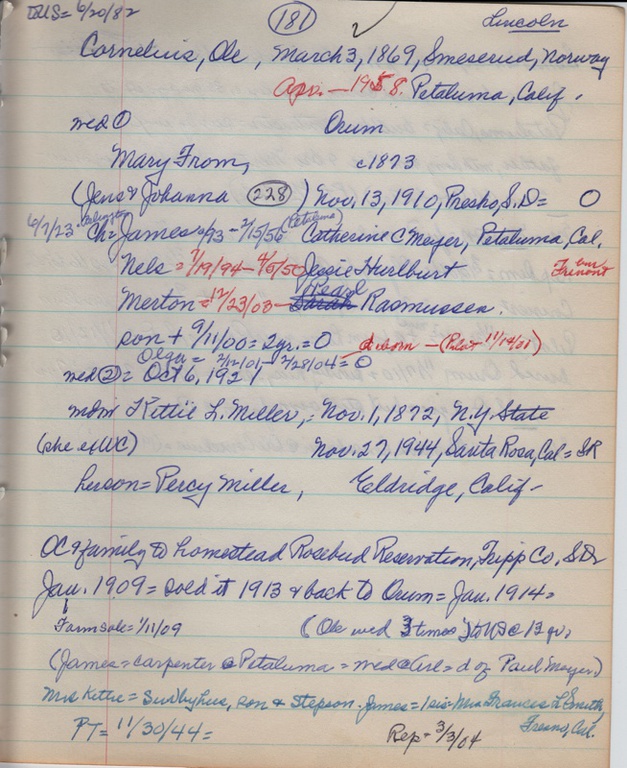 DUS = 6/20/82 (181) Lincoln
Cornelius, Ole, March 3, 1869, Smeserud, Norway
Apr. — 1958. Petaluma, Calif.
med ① Orum
Mary From, c1873
(Jens & Johanna (228)) Nov. 13, 1910, Presho, S.D. = O
6/7/23 Ch = James 93 - 2/15/56 (Petaluma) Catherine C Meyer, Petaluma, Cal.
Nels = 7/19/94 - Jessie Hurlburt bur Fremont
Pearl
Merton = 12/23/08 — Sarah Rasmussen.
son + 9/11/00 = 2yr. = O d. born — (Pilot 11/14/01)
Olga = 2/12/01 - 2/28/04 = O
med ② = Oct 6, 1921
mdm Kittie L. Miller, Nov. 1, 1872, N.Y. State
(she exWC) Nov. 27, 1944, Santa Rosa, Cal = SR
herson = Percy Miller, Eldridge, Calif -
OC & family to homestead Rosebud Reservation, Tripp Co, S.D.
Jan. 1909 = sold it 1913 & back to Orum = Jan. 1914 =
Farm sale = 1/11/09 (Ole wed 3 times
(James = carpenter @ Petaluma = = d of Paul Meyer)
Mrs Kittie = Survby hus, son & stepson. James = 1 sis = Mrs Frances L Smith,
Fresno, Cal.
PT = 11/30/44 = Rep = 3/3/04